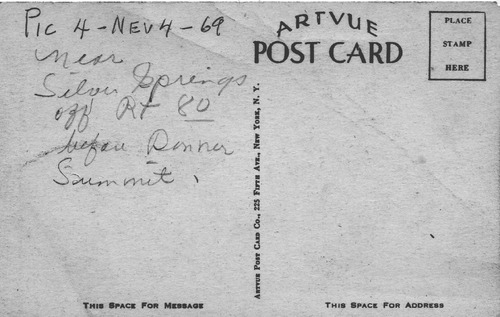 PIC 4-NEV4-69
near
Silver Springs
off RT 80
before Donner
Summit.
ARTVUE
POST CARD
PLACE
STAMP
HERE
ARTVUE POST CARD CO., 225 FIFTH AVE., NEW YORK, N. Y.
THIS SPACE FOR MESSAGE
THIS SPACE FOR ADDRESS